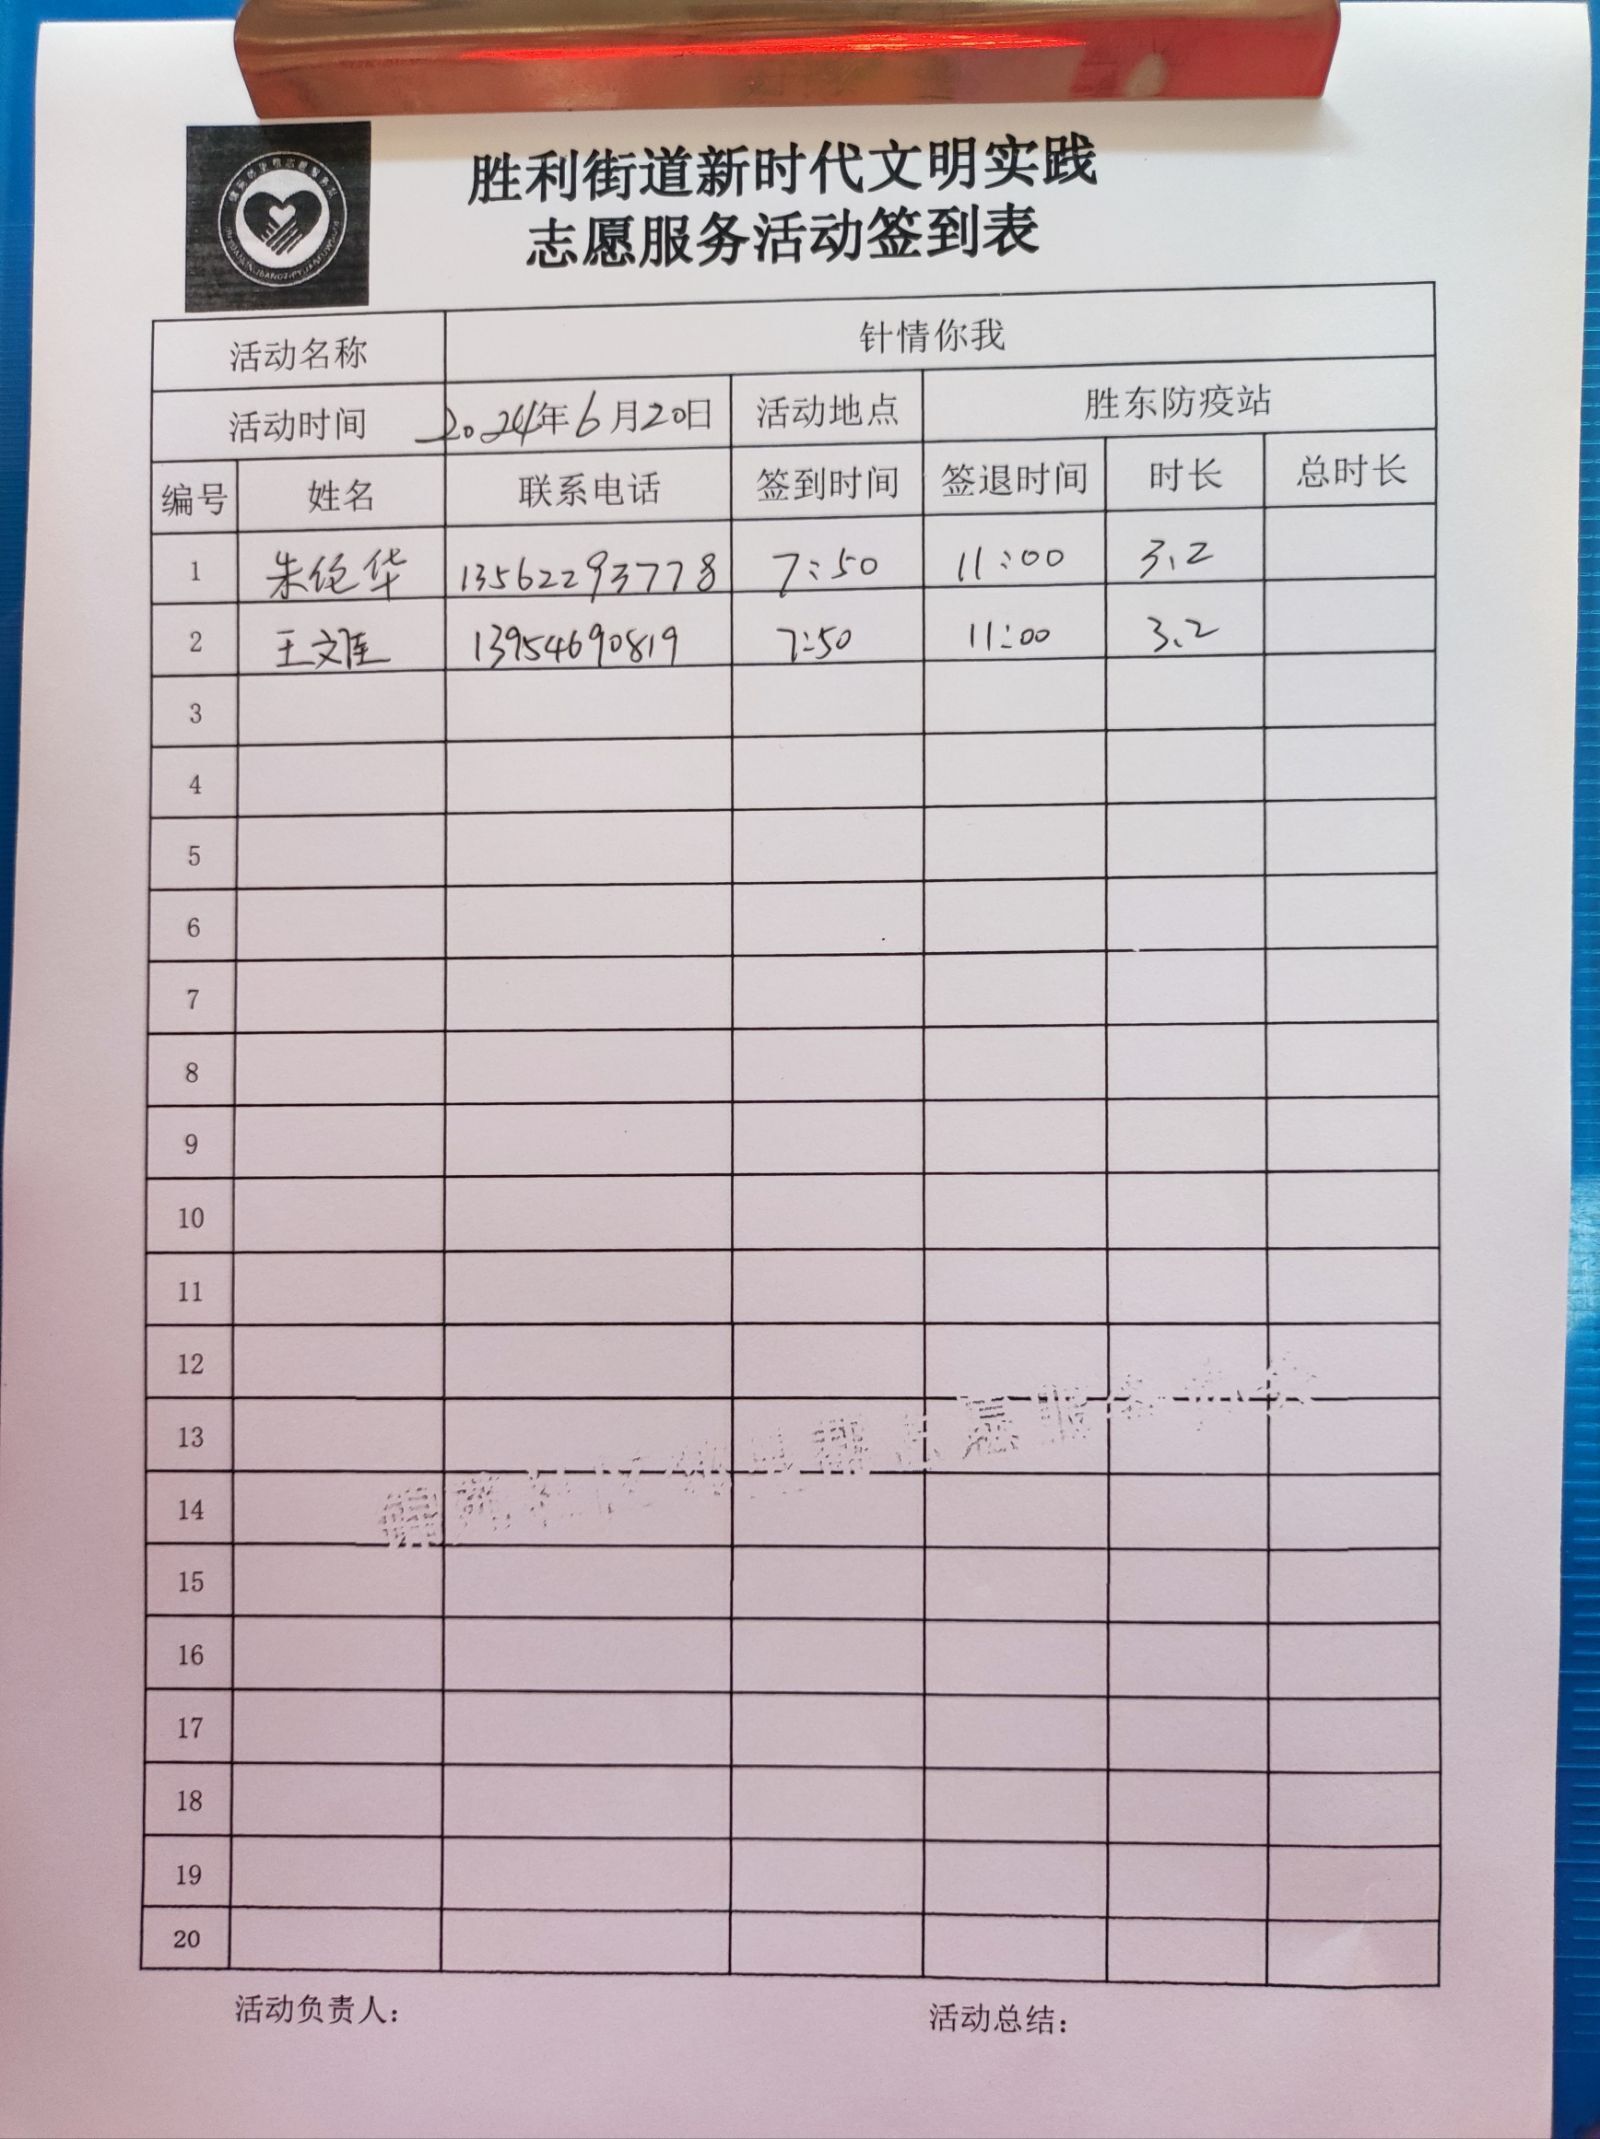 胜利街道新时代文明实践
志愿服务活动签到表
活动名称 针情你我
活动时间 2024年6月20日 活动地点 胜东防疫站
编号 姓名 联系电话 签到时间 签退时间 时长 总时长
1 朱 华 13562293778 7:50 11:00 3.2
2 王文 13954690819 7:50 11:00 3.2
3
4
5
6
7
8
9
10
11
12
13
14
15
16
17
18
19
20
活动负责人： 活动总结：